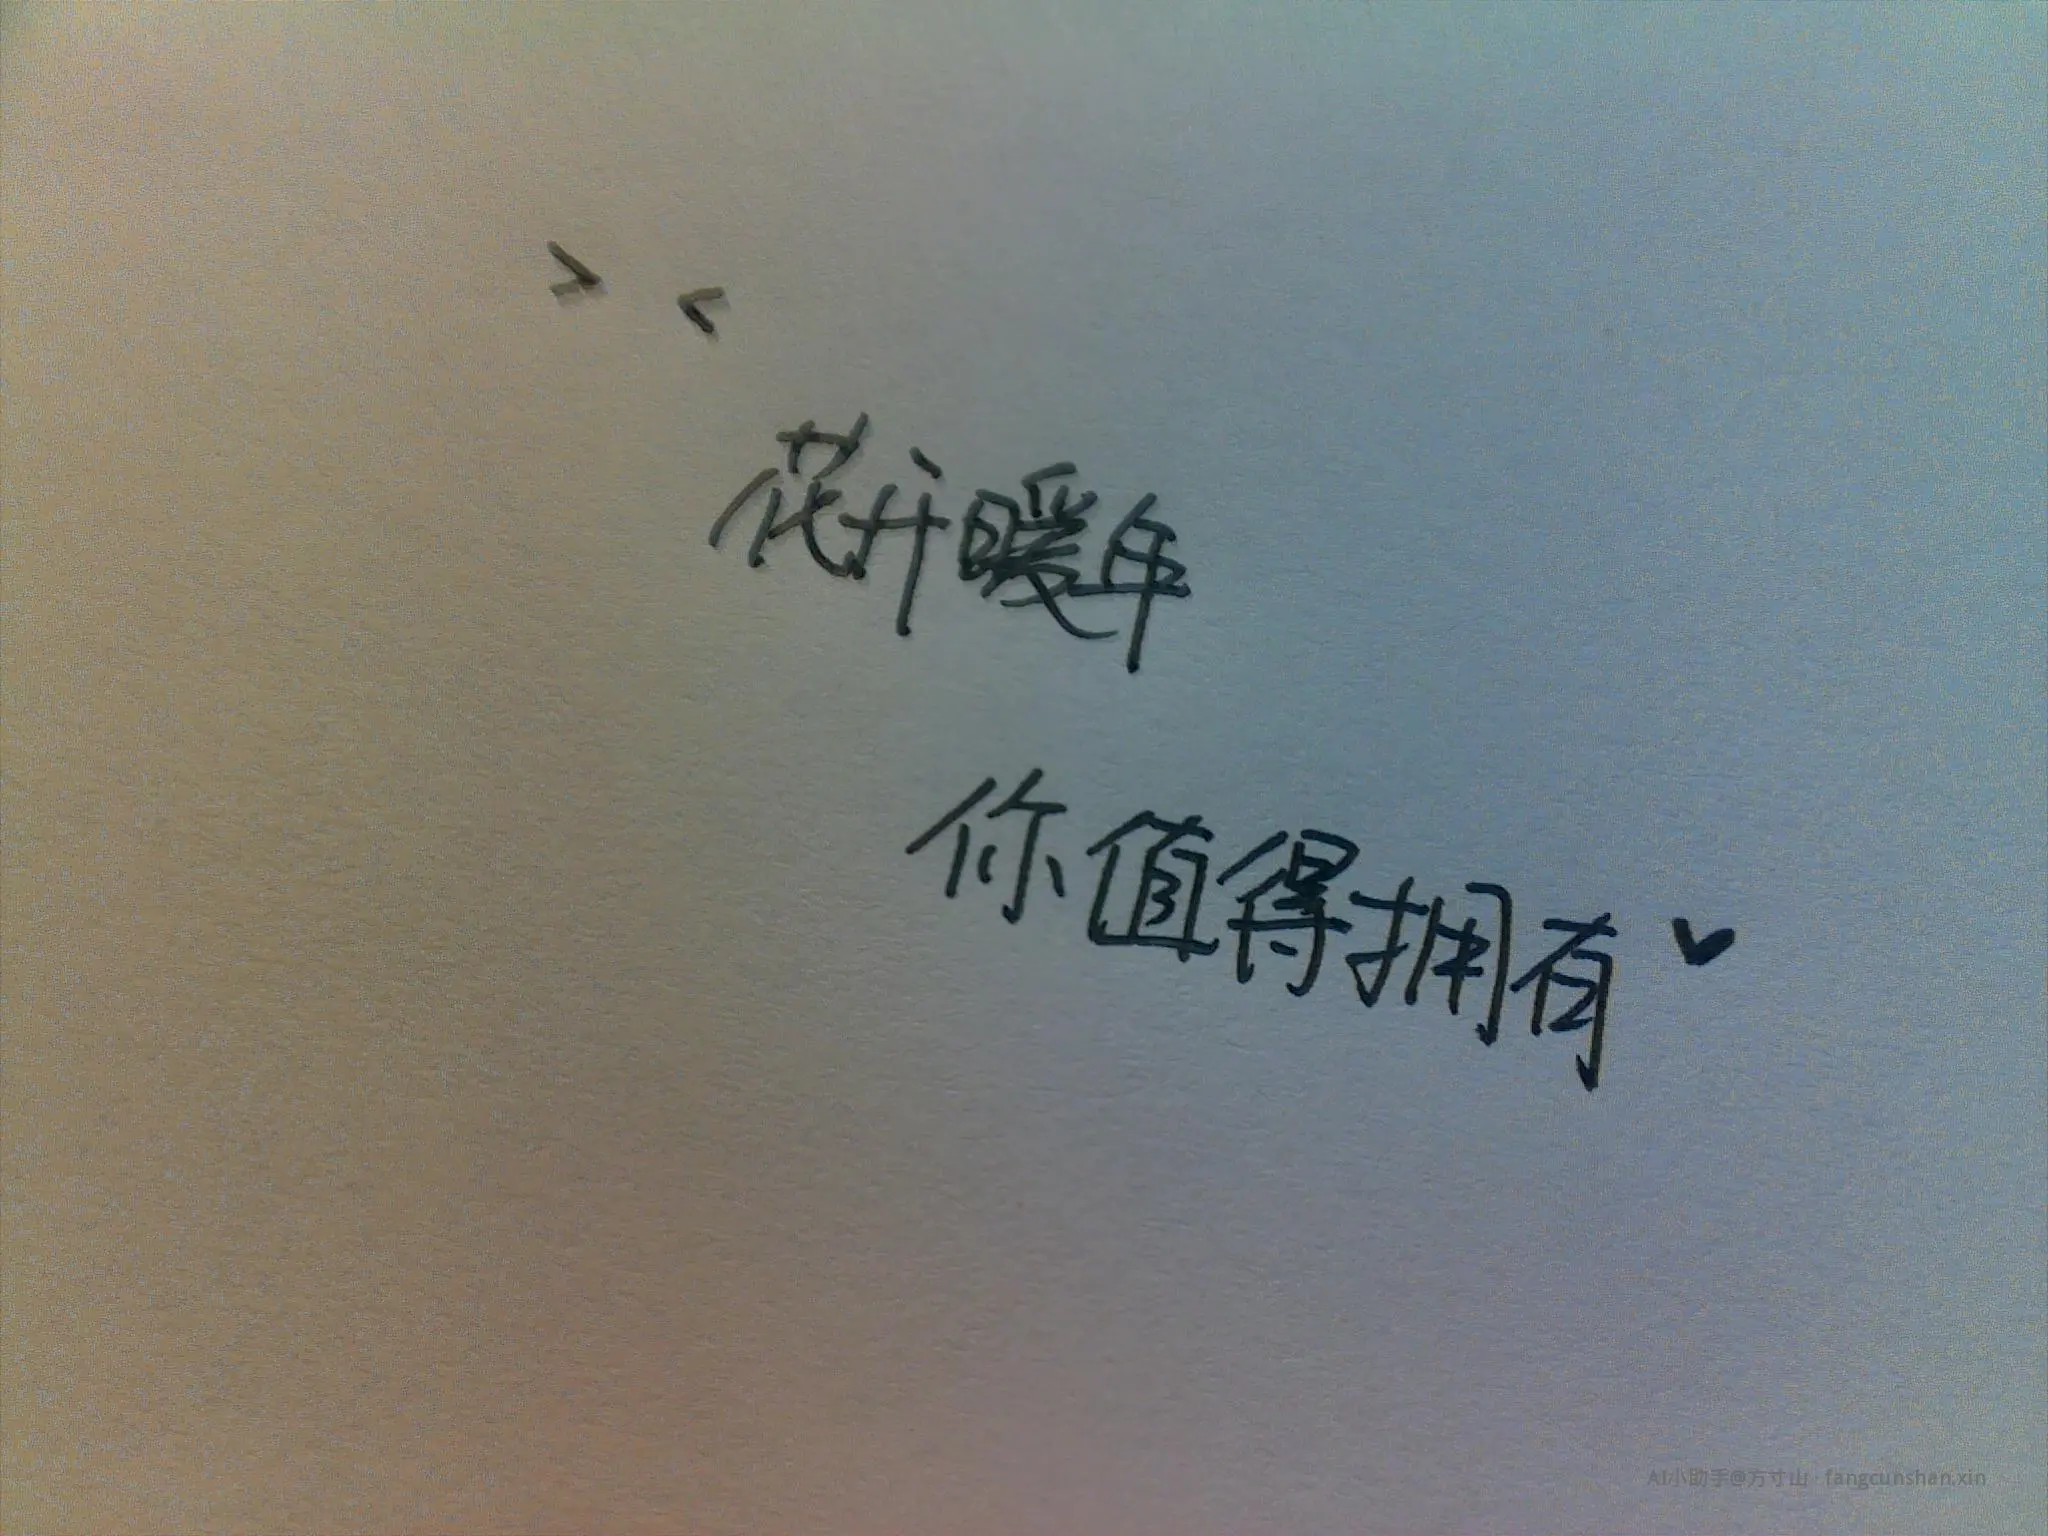 > <
花开暖年
你值得拥有♥
AI小助手@方寸山 · fangcunshan.xin